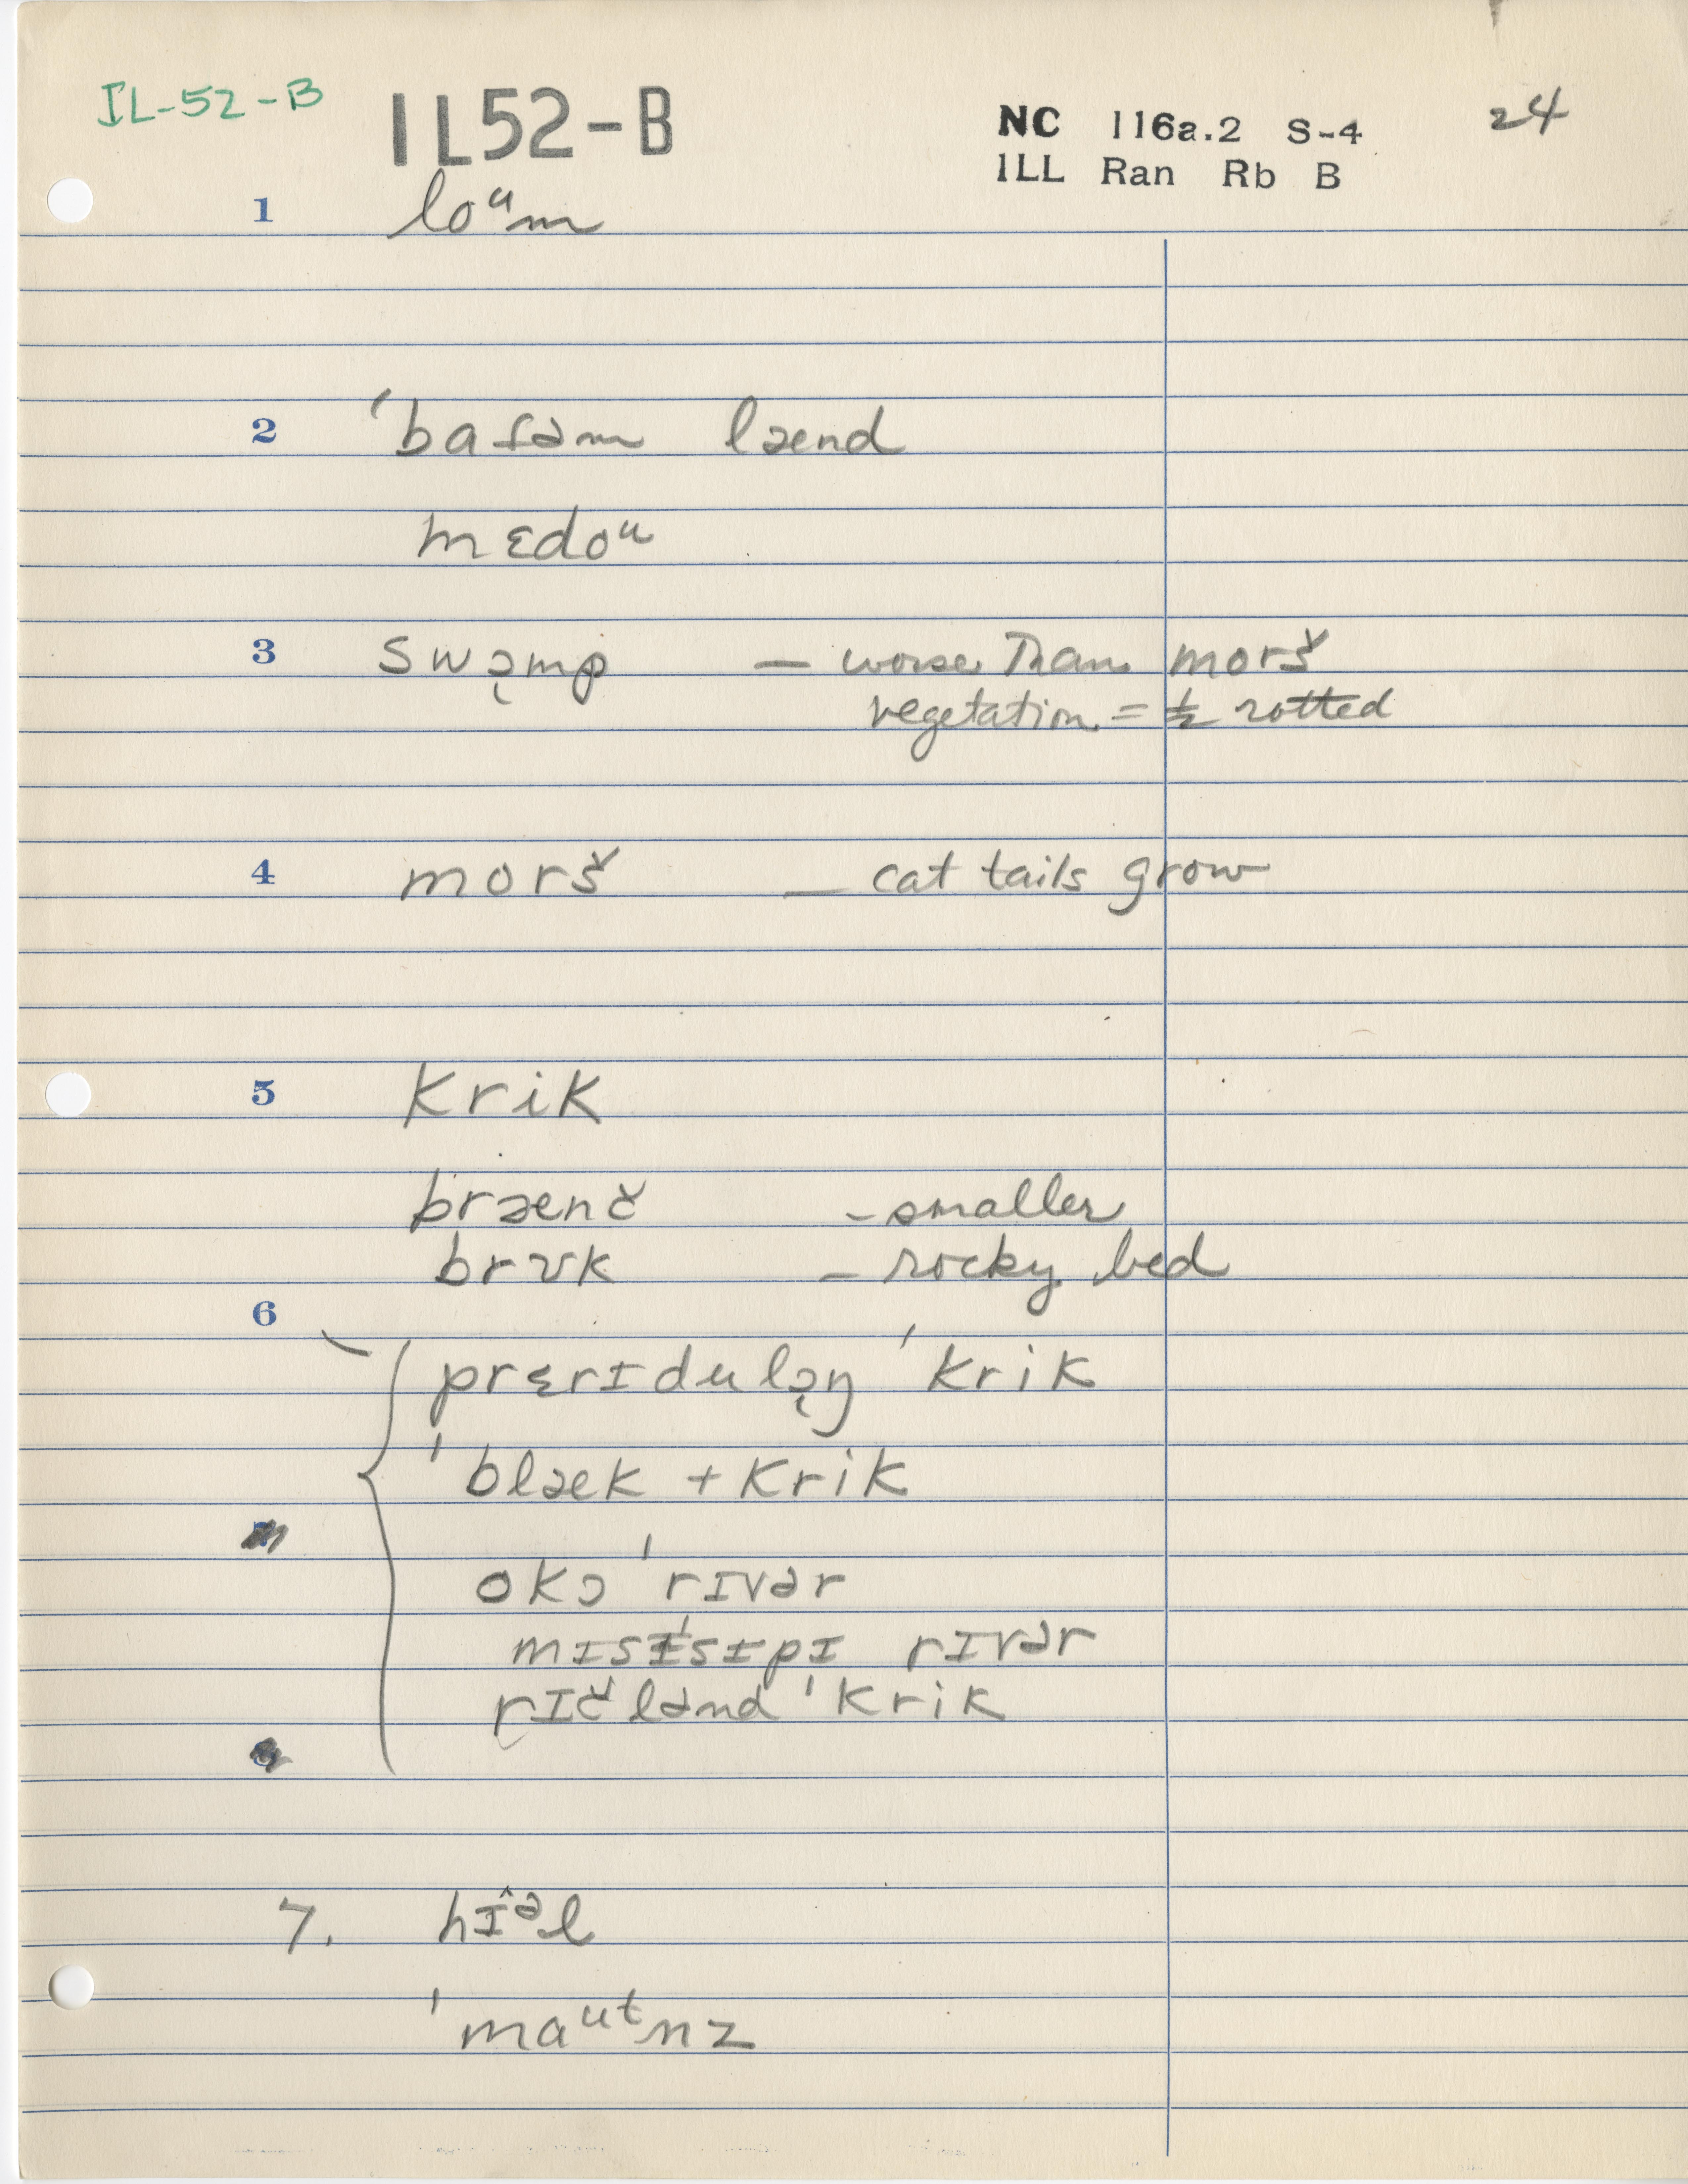 IL-52-B IL52-B NC 116a.2 S-4 24
ILL Ran Rb B
1 loᵘm
2 ˈbaɾəm lænd
mɛdoᵘ
3 swɔ̨mp — worse than morš
vegetation = ½ rotted
4 morš — cat tails grow
5 krik
brænč - smaller
brʊk - rocky bed
6
prɛrɪdulɔ̨ŋ ˈkrik
ˈblæk + krik
okɔ ˈrɪvər
mɪsɪˈsɪpɪ rɪvər
rɪčlənd ˈkrik
7. hɪ̂ᵊl
ˈmaᵘᵗnz